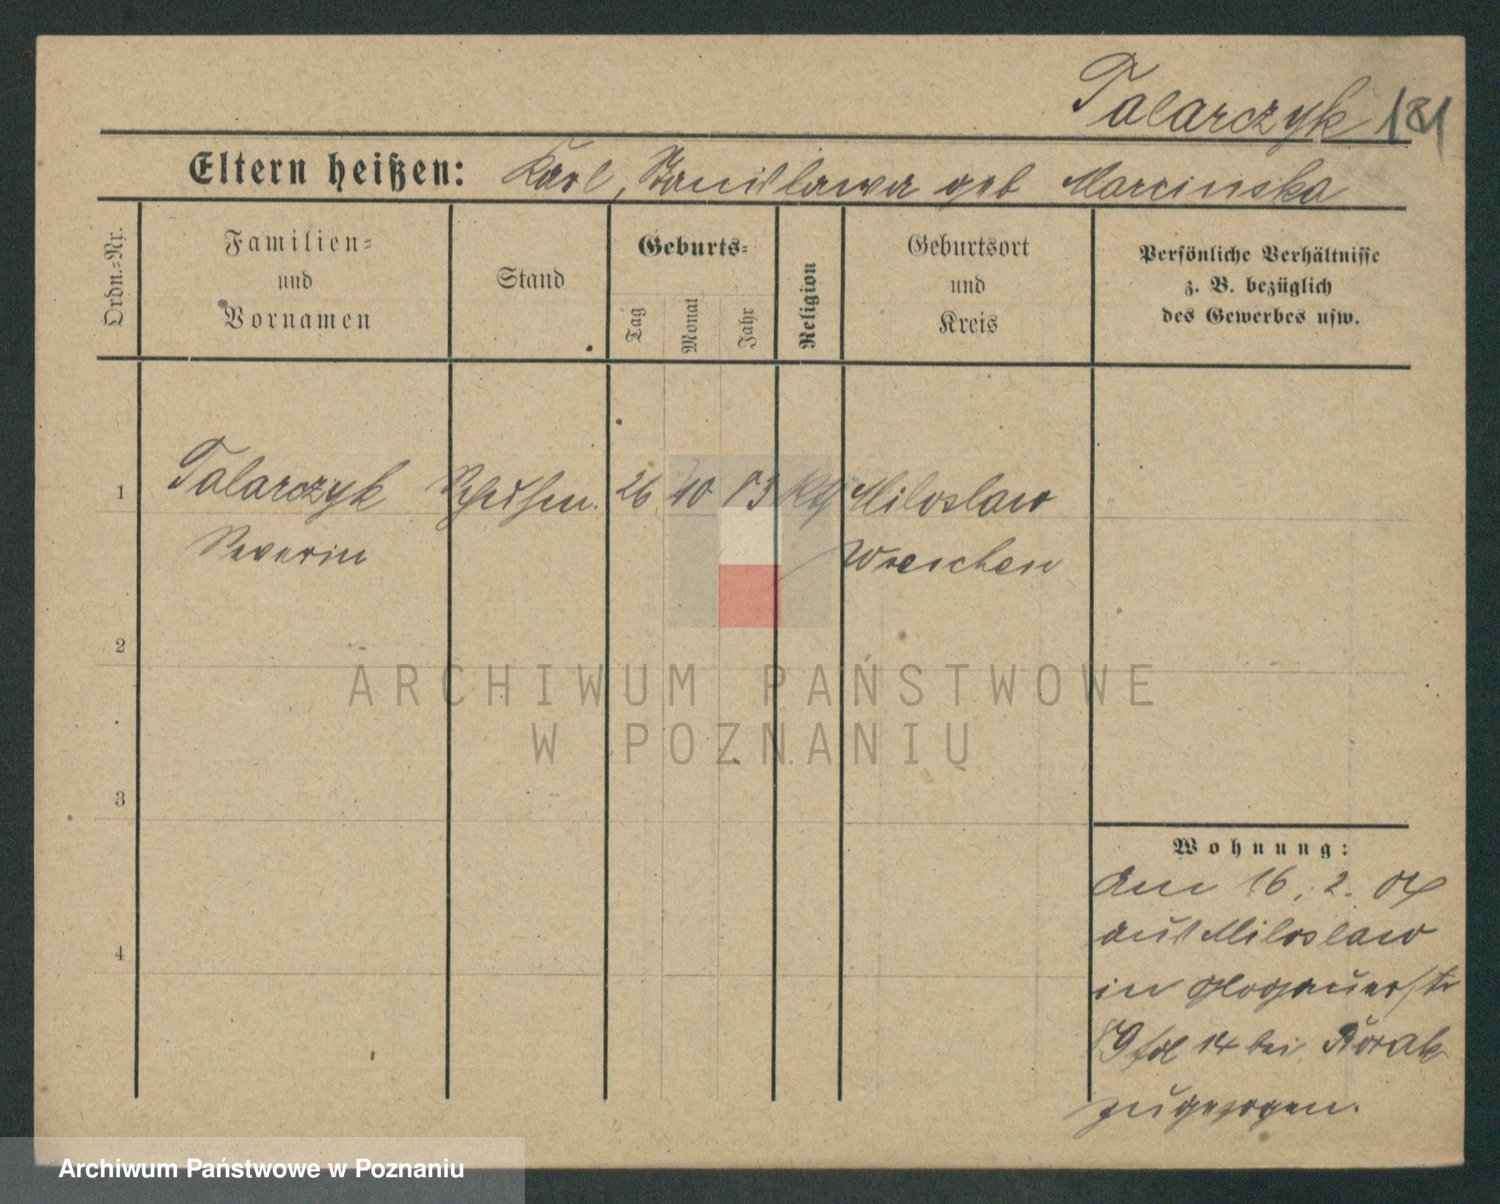 Talarczyk 181
Eltern heißen: Karl, Stanislawa geb Marcinska
Ordn.-Nr.
Familien-
und
Vornamen
Stand
Geburts-
Tag
Monat
Jahr
Religion
Geburtsort
und
Kreis
Persönliche Verhältnisse
z. B. bezüglich
des Gewerbes usw.
1 Talarczyk 26 10 83 Kth Miloslaw
Severin Wreschen
2
3
4
ARCHIWUM PAŃSTWOWE
W POZNANIU
Wohnung:
Am 16. 2. 04
aus Miloslaw
in Glogauerstr
14 bei
zugezogen.
Archiwum Państwowe w Poznaniu